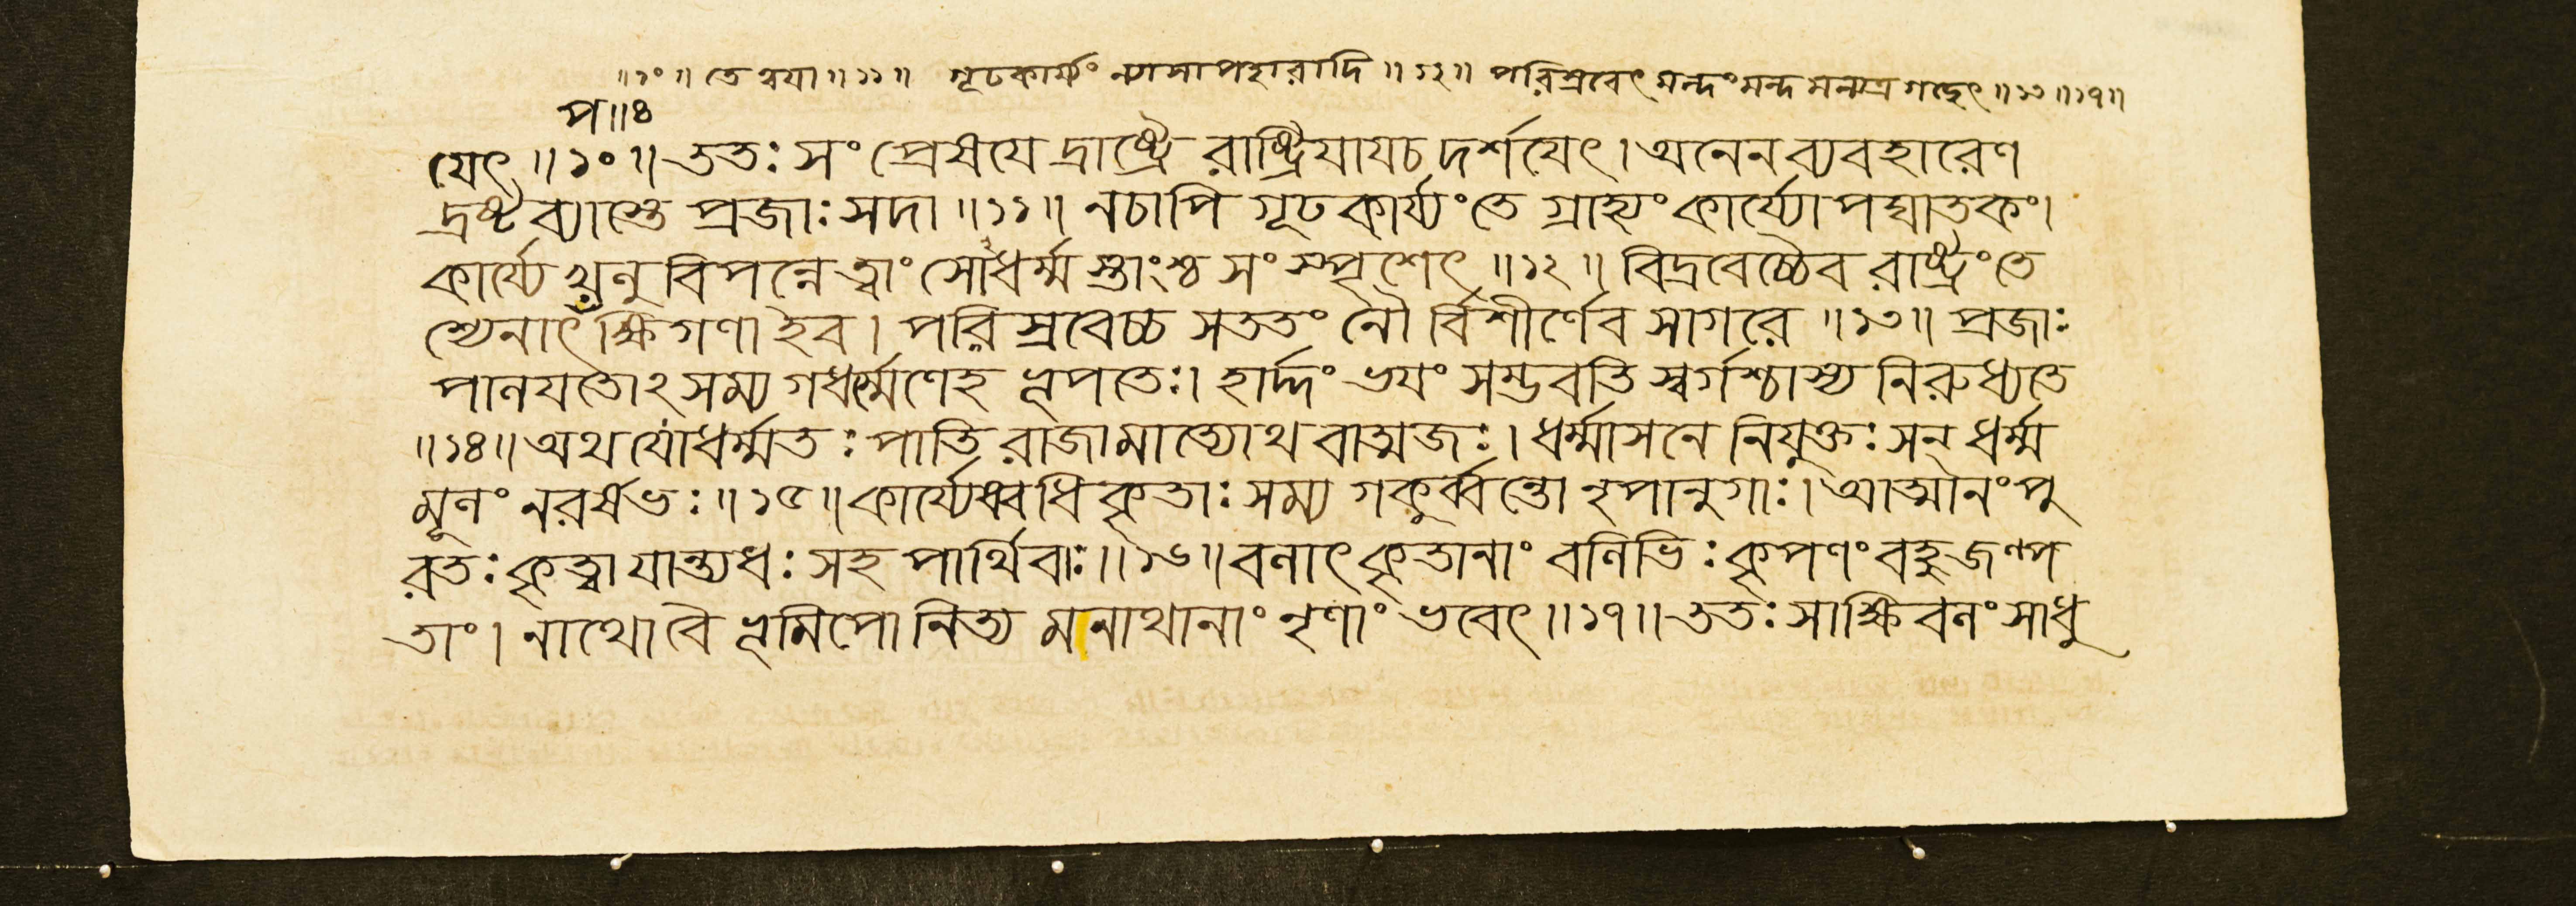 ॥১০॥ তে ত্বযা॥১১॥ গূঢকার্য্যং ন্যাসাপহারাদি॥১২॥ পরিস্রবেৎ মন্দংমন্দ মন্যত্র গচ্ছেৎ॥১৩॥১৭॥
প॥৪
যেৎ॥১০॥ততঃ সংপ্রেষযে দ্রাষ্ট্রে রাষ্ট্রিযাযচ দর্শযেৎ।অনেনব্যবহারেণ
দ্রষ্টব্যাস্তে প্রজাঃসদা॥১১॥ নচাপি গূঢকার্য্যংতে গ্রাহ্যংকার্য্যোপঘাতকং।
কার্য্যে খনু বিপন্নেত্বাং সোধর্ম্মস্তাংশ্চ সংস্পৃশেৎ॥১২॥ বিদ্রবেচ্চৈব রাষ্ট্রংতে
শ্যেনাৎক্ষিগণাইব। পরিস্রবেচ্চ সততং নৌর্বিশীর্ণেব সাগরে॥১৩॥ প্রজাঃ
পানযতোঽসম্যগধর্ম্মণেহ ভূপতেঃ। হার্দ্দং ভযং সম্ভবতি স্বর্গশ্চাস্য নিরুধ্যতে
॥১৪॥অথযোধর্ম্মতঃপাতি রাজামাত্যোথবাত্মজঃ। ধর্ম্মাসনে নিযুক্তঃসন্ ধর্ম্ম
মূনং নরর্ষভঃ॥১৫॥কার্য্যেষ্বধিকৃতাঃসম্যগকুর্ব্বন্তো নৃপানুগাঃ।আত্মানংপু
রতঃকৃত্বাযান্ত্যধঃসহ পার্থিবাঃ॥১৬॥বনাৎকৃতানাং বনিভিঃকৃপণংবহুজল্প
তাং। নাথোবৈ ভূমিপো নিত্য মনাথানাং নৃণাং ভবেৎ॥১৭॥ততঃসাক্ষিবনং সাধু